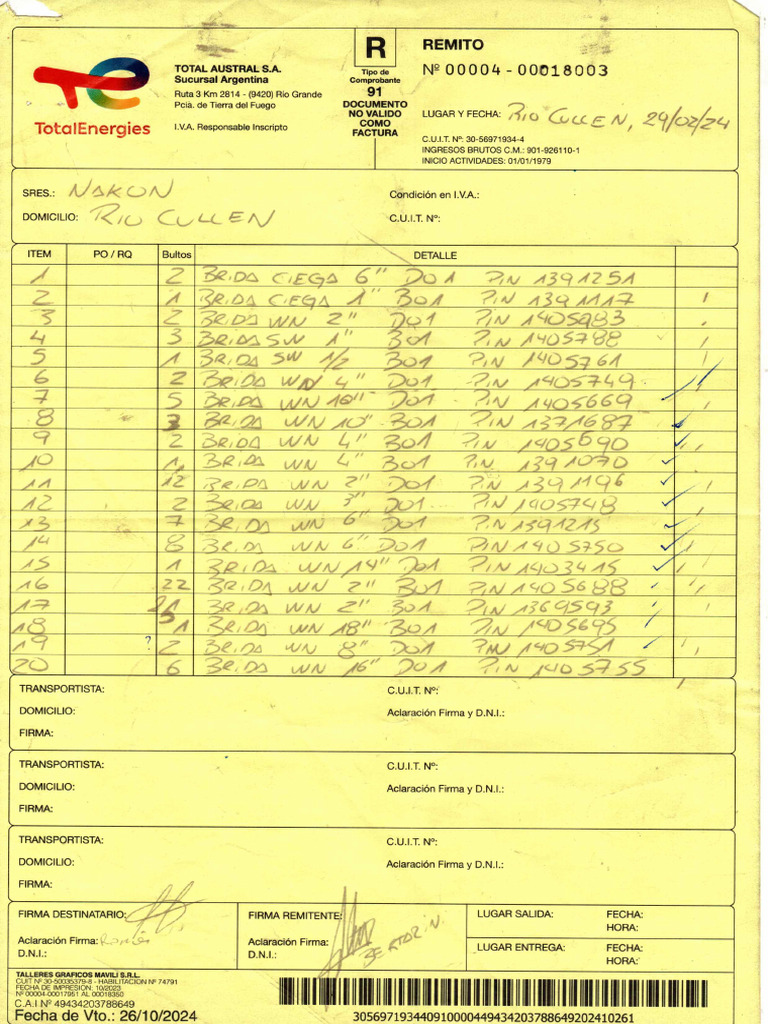 TotalEnergies
TOTAL AUSTRAL S.A.
Sucursal Argentina
Ruta 3 Km 2814 - (9420) Río Grande
Pcia. de Tierra del Fuego
I.V.A. Responsable Inscripto
R
Tipo de
Comprobante
91
DOCUMENTO
NO VALIDO
COMO
FACTURA
REMITO
Nº 00004 - 00018003
LUGAR Y FECHA: RIO CULLEN, 29/02/24
C.U.I.T. Nº: 30-56971934-4
INGRESOS BRUTOS C.M.: 901-926110-1
INICIO ACTIVIDADES: 01/01/1979
SRES.: NAKON
Condición en I.V.A.:
DOMICILIO: RIO CULLEN
C.U.I.T. Nº:
ITEM PO / RQ Bultos DETALLE
1 2 BRIDA CIEGA 6" D01 P/N 1391251
2 1 BRIDA CIEGA 1" B01 P/N 1391117
3 2 BRIDA WN 2" D01 P/N 1405983
4 3 BRIDA SW 1" B01 P/N 1405788
5 1 BRIDA SW 1/2 B01 P/N 1405761
6 2 BRIDA WN 4" D01 P/N 1405749
7 5 BRIDA WN 10" D01 P/N 1405669
8 3 BRIDA WN 10" B01 P/N 1371687
9 2 BRIDA WN 4" B01 P/N 1405690
10 1 BRIDA WN 4" B01 P/N 1391070
11 12 BRIDA WN 2" D01 P/N 1391196
12 2 BRIDA WN 3" D01 P/N 1405748
13 7 BRIDA WN 6" D01 P/N 1391215
14 8 BRIDA WN 6" D01 P/N 1405750
15 1 BRIDA WN 14" D01 P/N 1403415
16 22 BRIDA WN 2" B01 P/N 1405688
17 BRIDA WN 2" B01 P/N 1369593
18 1 BRIDA WN 18" B01 P/N 1405695
19 ? 2 BRIDA WN 8" D01 P/N 1405751
20 6 BRIDA WN 16" D01 P/N 1405755
TRANSPORTISTA: C.U.I.T. Nº:
DOMICILIO: Aclaración Firma y D.N.I.:
FIRMA:
TRANSPORTISTA: C.U.I.T. Nº:
DOMICILIO: Aclaración Firma y D.N.I.:
FIRMA:
TRANSPORTISTA: C.U.I.T. Nº:
DOMICILIO: Aclaración Firma y D.N.I.:
FIRMA:
FIRMA DESTINATARIO:
Aclaración Firma:
D.N.I.:
FIRMA REMITENTE:
Aclaración Firma:
D.N.I.:
LUGAR SALIDA: FECHA:
HORA:
LUGAR ENTREGA: FECHA:
HORA:
TALLERES GRAFICOS MAVILI S.R.L.
CUIT Nº 30-50035379-8 - HABILITACION Nº 74791
FECHA DE IMPRESION: 10/2023
Nº 00004-00017951 AL 00018350
C.A.I Nº 49434203788649
Fecha de Vto.: 26/10/2024
3056971934409100004494342037886492024​10261